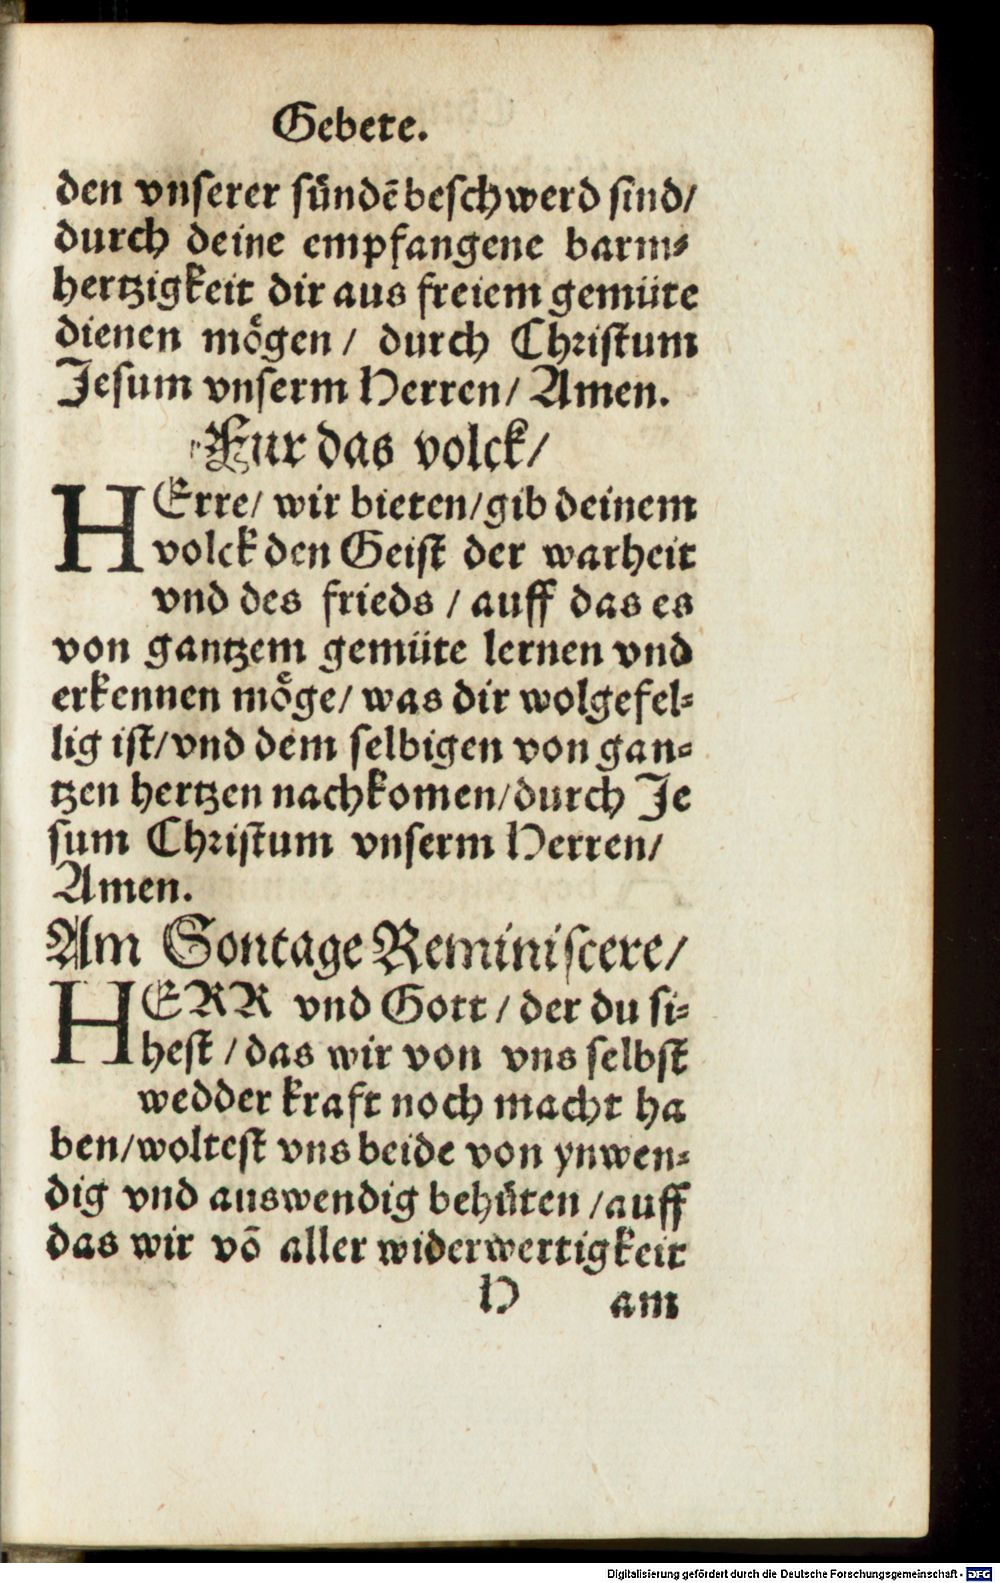 Gebete.
den vnserer sündē beschwerd sind/
durch deine empfangene barm⸗
hertzigkeit dir aus freiem gemüte
dienen mögen / durch Christum
Jesum vnserm Herren/ Amen.
Fur das volck/
HErre/ wir bieten/gib deinem
volck den Geist der warheit
vnd des frieds / auff das es
von gantzem gemüte lernen vnd
erkennen möge/ was dir wolgefel⸗
lig ist/vnd dem selbigen von gan⸗
tzen hertzen nachkomen/durch Je
sum Christum vnserm Herren/
Amen.
Am Sontage Reminiscere/
HERR vnd Gott / der du si⸗
hest / das wir von vns selbst
wedder kraft noch macht ha
ben/woltest vns beide von ynwen⸗
dig vnd auswendig behüten /auff
das wir võ aller widerwertigkeit
H am
Digitalisierung gefördert durch die Deutsche Forschungsgemeinschaft - DFG